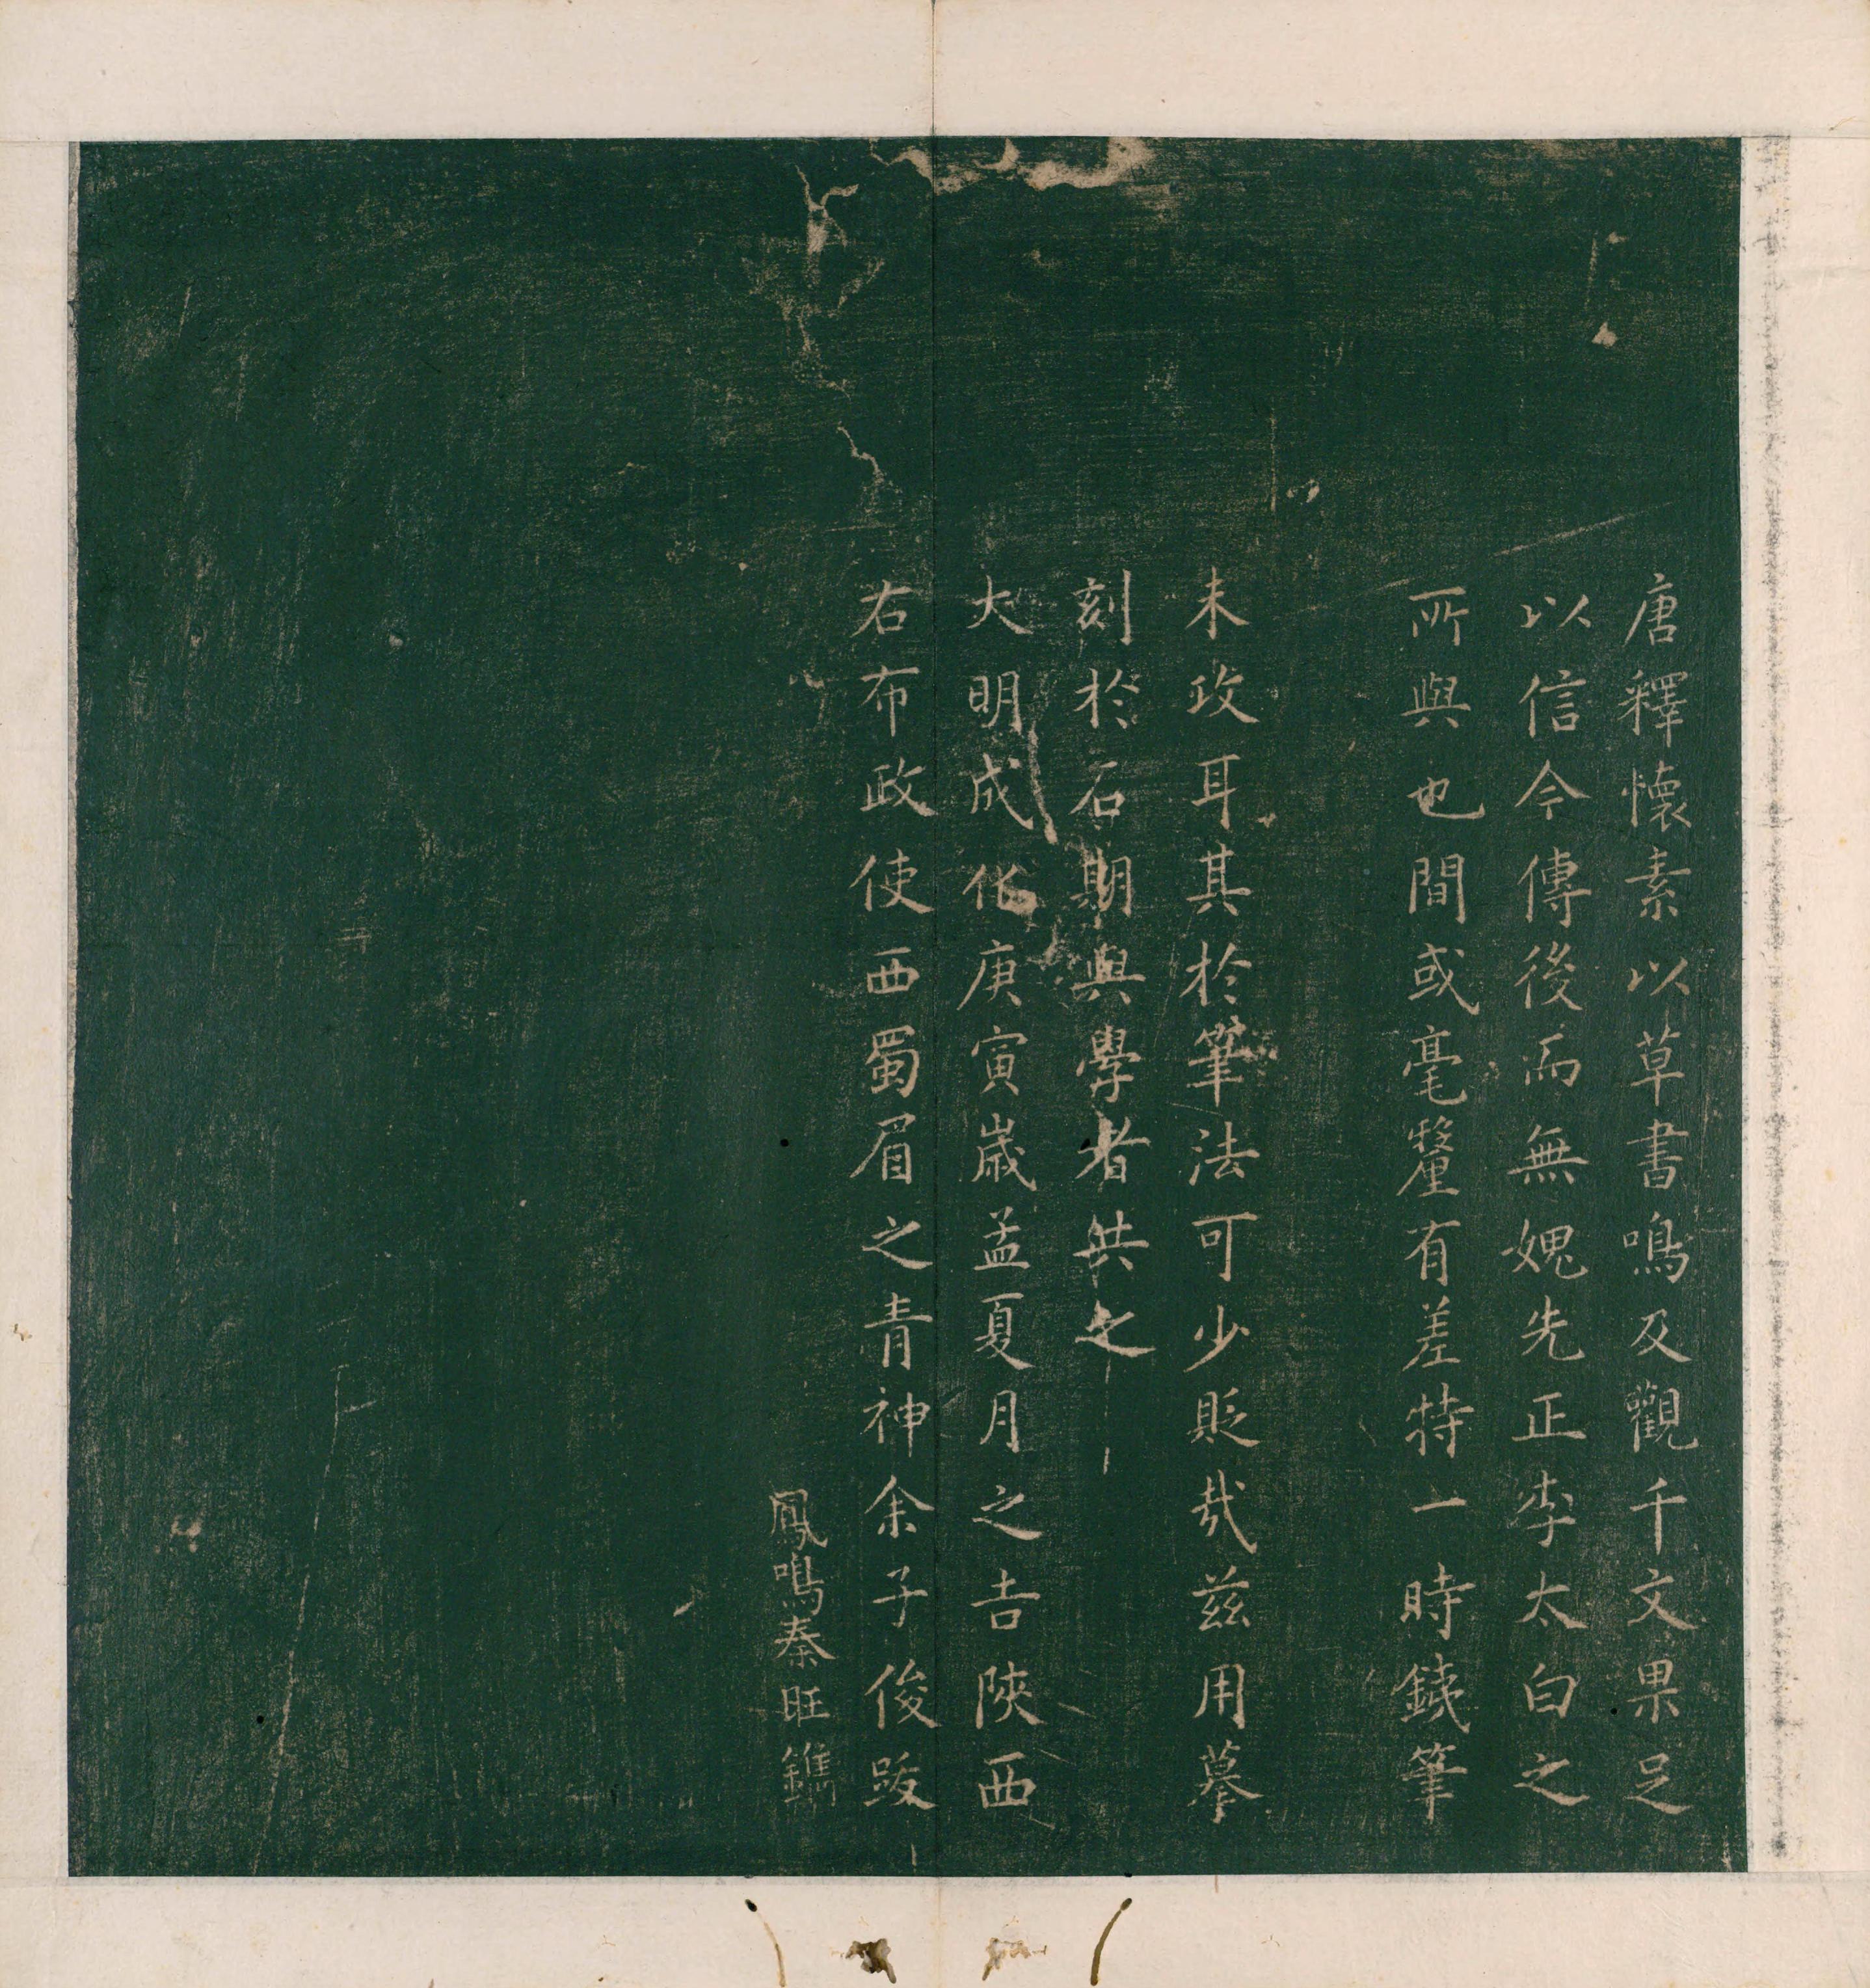 唐釋懷素以草書鳴及觀千文果足
以信今傳後而無媿先正李太白之
所與也間或毫釐有差特一時銕筆
未攻耳其於筆法可少貶哉茲用摹
刻於石期與學者共之
大明成化庚寅歲孟夏月之吉陝西
右布政使西蜀眉之青神余子俊跋
鳳鳴秦旺鐫